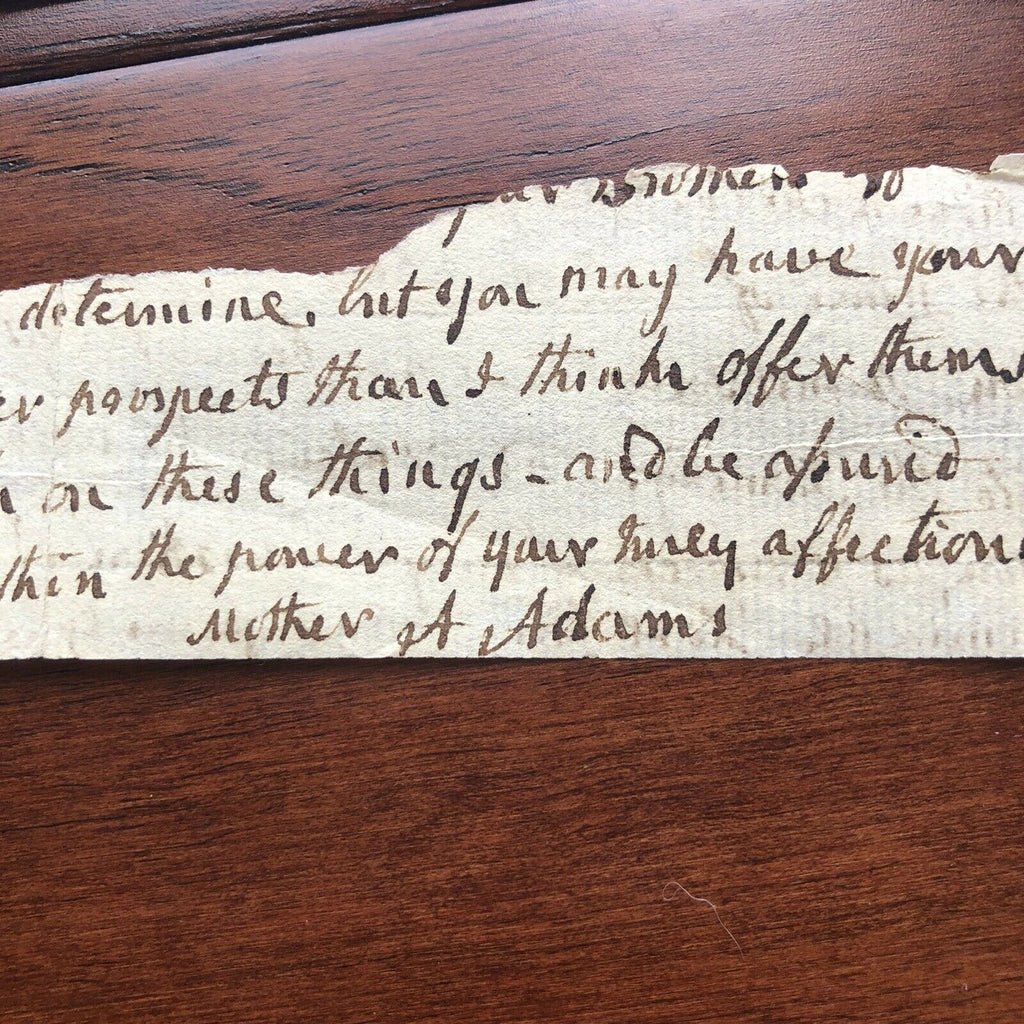 your Brother to
determine, but you may have your
er prospects than I think offer thems
on these things - and be assured
thin the power of your truly affection
Mother A Adams